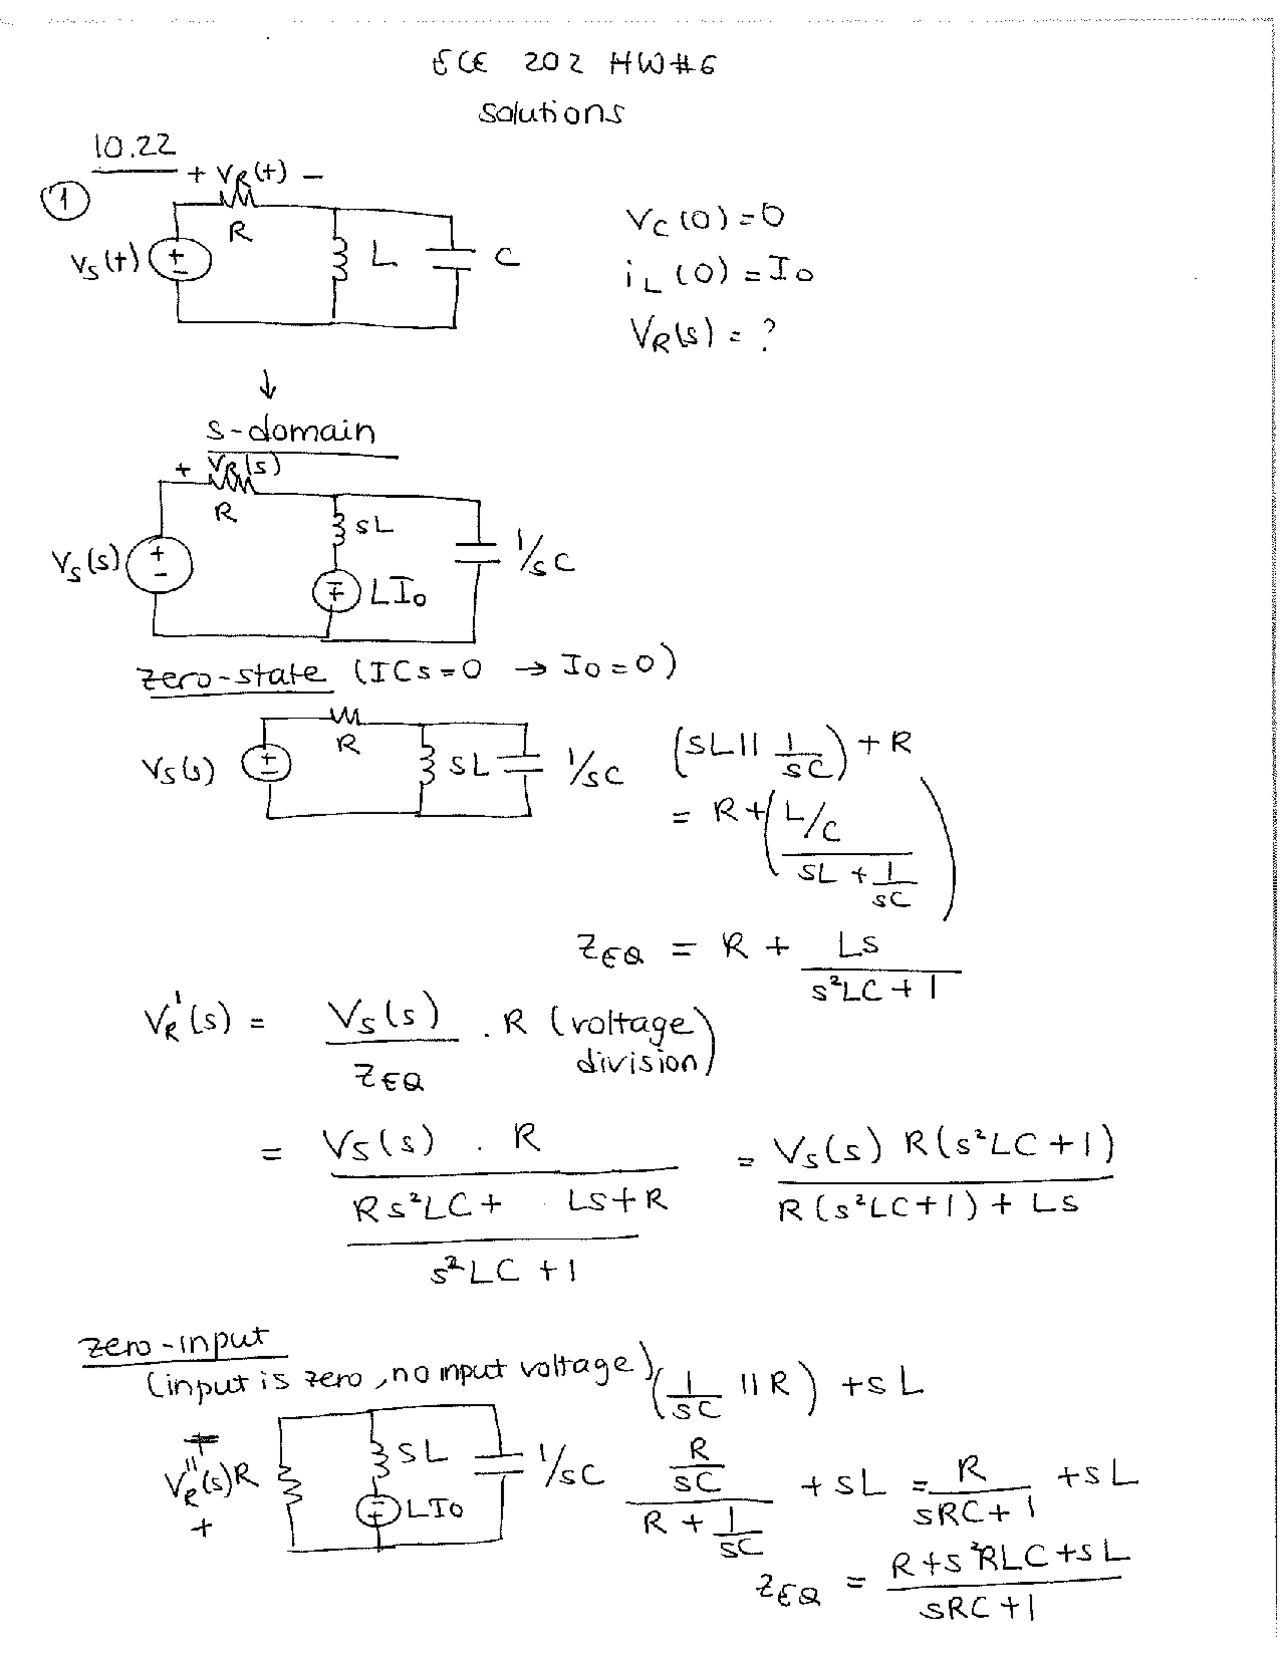 ECE 202 HW#6
Solutions
10.22
①
+ VR(t) -
R
vs(t)
+
-
L
C
Vc(0)=0
iL(0)=Io
VR(s)=?
↓
s-domain
+ VR(s)
R
Vs(s)
+
-
sL
LIo
1/sC
zero-state (ICs=0 → Io=0)
R
Vs(s)
sL
1/sC
(sL || 1/sC) + R
= R + ( L/C / (sL + 1/sC) )
ZEQ = R + Ls / (s²LC+1)
VR'(s) = Vs(s) / ZEQ . R (voltage
division)
= Vs(s) . R / ( (Rs²LC + Ls+R) / (s²LC+1) ) = Vs(s) R(s²LC+1) / (R(s²LC+1) + Ls)
zero-input
(input is zero, no input voltage)
(1/sC || R) + sL
VR''(s)
+
R
sL
LIo
1/sC
(R/sC) / (R + 1/sC) + sL = R / (sRC+1) + sL
ZEQ = (R+s²RLC+sL) / (sRC+1)